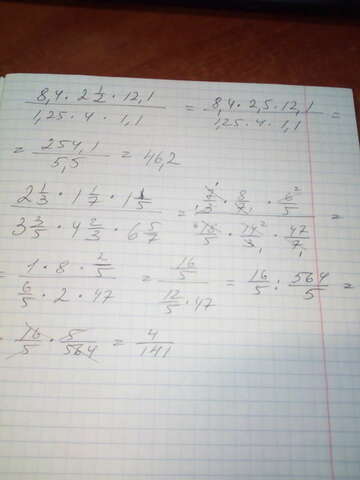 (8,4 · 2 1/2 · 12,1)/(1,25 · 4 · 1,1) = (8,4 · 2,5 · 12,1)/(1,25 · 4 · 1,1) =
= 254,1/5,5 = 46,2
(2 1/3 · 1 1/7 · 1 1/5)/(3 3/5 · 4 2/3 · 6 5/7) = (7/3 · 8/7 · 6/5)/(18/5 · 14/3 · 47/7) =
= (1 · 8 · 2/5)/(6/5 · 2 · 47) = (16/5)/(12/5 · 47) = 16/5 : 564/5 =
· 16/5 · 5/564 = 4/141